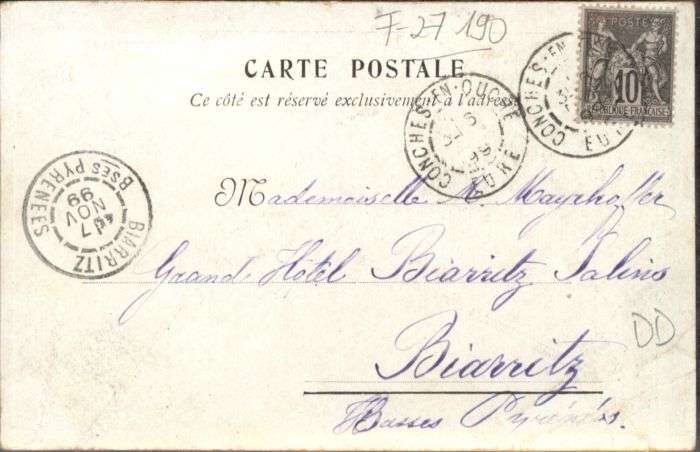 F-27 190
POSTE
10
REPUBLIQUE FRANÇAISE
CARTE POSTALE
Ce côté est réservé exclusivement à l'adresse
CONCHES-EN-OUCHE
EURE
CONCHES-EN
EU
BIARRITZ
17
NOV
99
BSES PYRENEES
Mademoiselle M. Mayrhoffer
Grand Hôtel Biarritz Salins
Biarritz
Basses Pyrénées.
DD